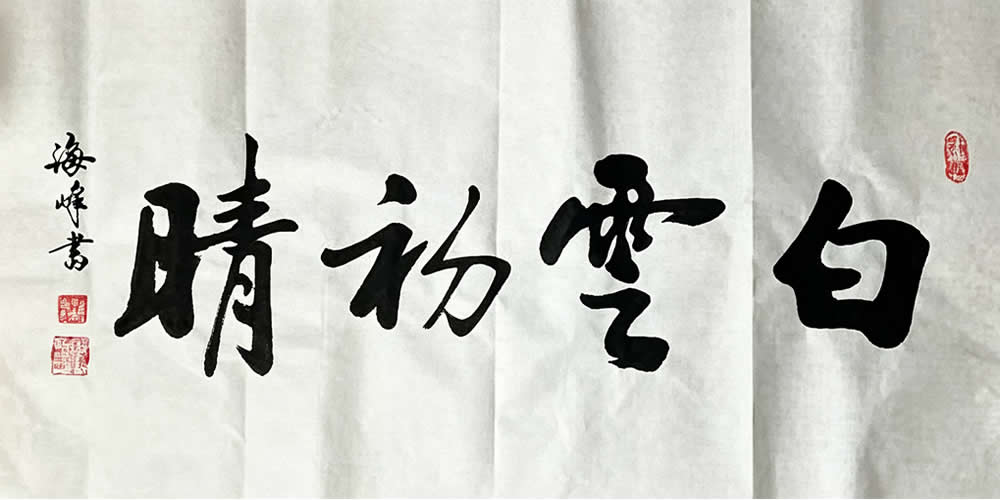 白雲初晴
海峰書